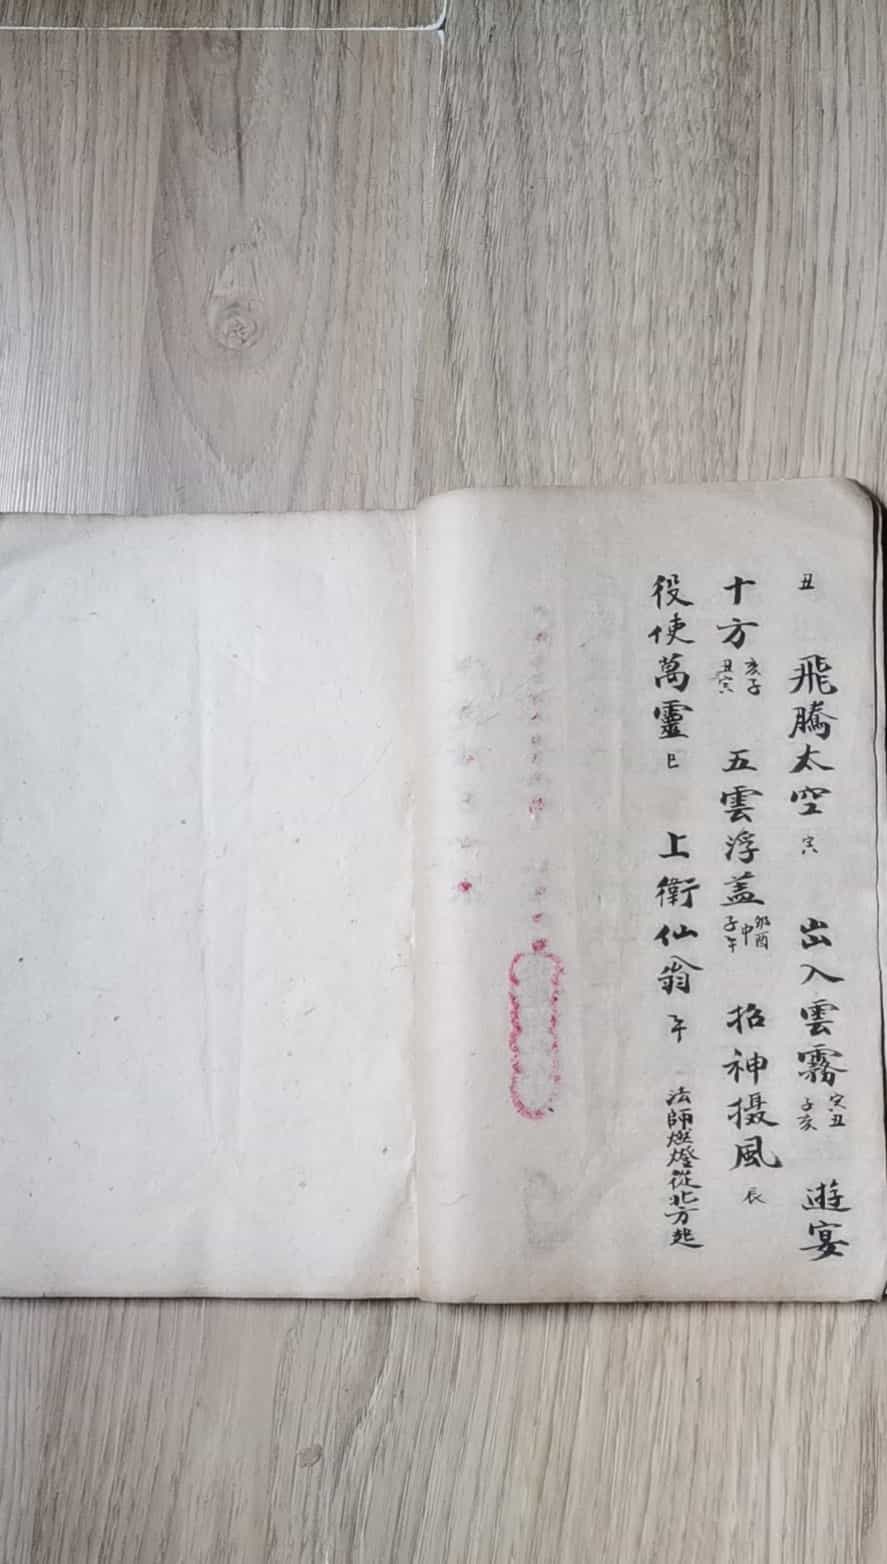 丑 飛騰太空 寅 出入雲霧 寅丑 子亥 遊宴
十方 亥子 丑寅 五雲浮盖 卯酉 中 子午 招神摄風 辰
役使萬靈 巳 上衛仙翁 午 法師燃燈從北方起